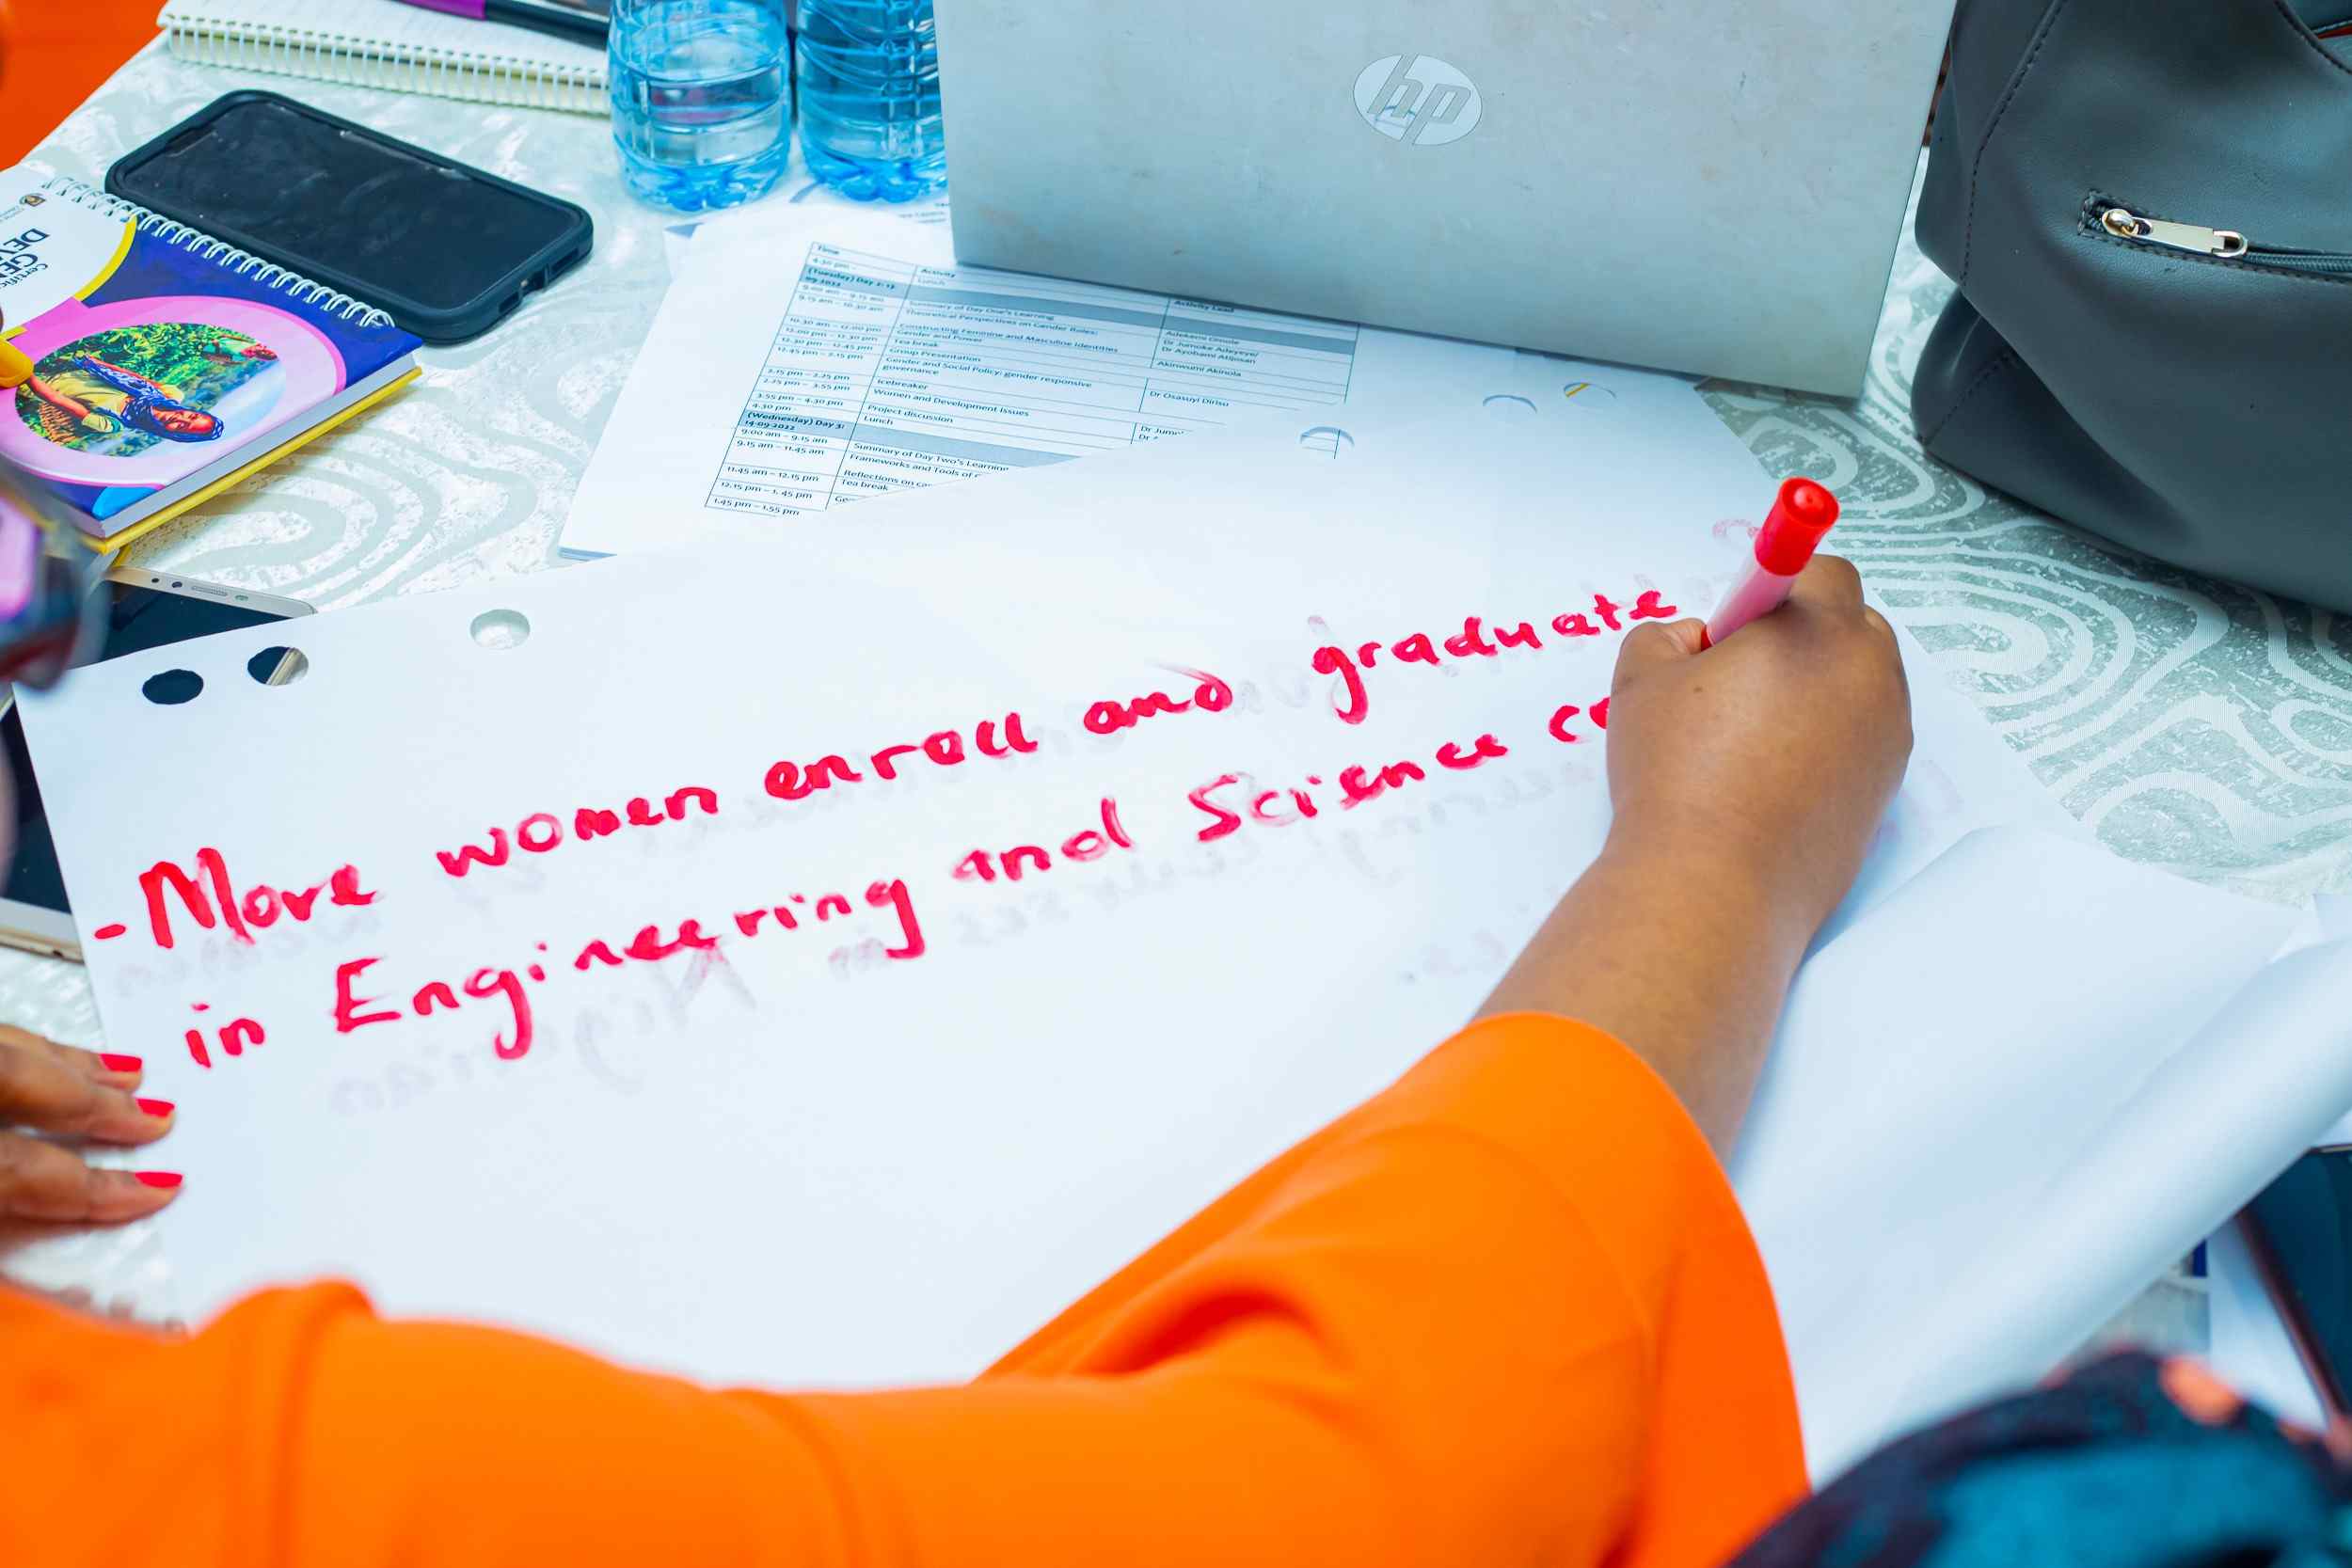 hp
Time
Activity
Activity Lead
4.30 pm -
Lunch
(Tuesday) Day 2: 13-
09-2022
9.00 am – 9.15 am
Summary of Day One's Learning
9.15 am – 10.30 am
Theoretical Perspectives on Gender Roles:
Constructing Feminine and Masculine Identities
10.30 am – 12.00 pm
Gender and Power
Dr Jumoke Adeyeye/
Dr Ayobami Atijosan
12.00 pm – 12.30 pm
Tea break
12.30 pm – 12.45 pm
Group Presentation
Akinwumi Akinola
12.45 pm – 2.15 pm
Gender and Social Policy: gender responsive
governance
Dr Osasuyi Dirisu
2.15 pm – 2.25 pm
Icebreaker
2.25 pm – 3.55 pm
Women and Development Issues
3.55 pm – 4.30 pm
Project discussion
4.30 pm -
Lunch
(Wednesday) Day 3:
14-09-2022
9.00 am – 9.15 am
Summary of Day Two's Learning
9.15 am – 11.45 am
Frameworks and Tools of
11.45 am – 12.15 pm
Reflections on
12.15 pm – 1.45 pm
Tea break
1.45 pm – 1.55 pm
- More women enroll and graduate
in Engineering and Science